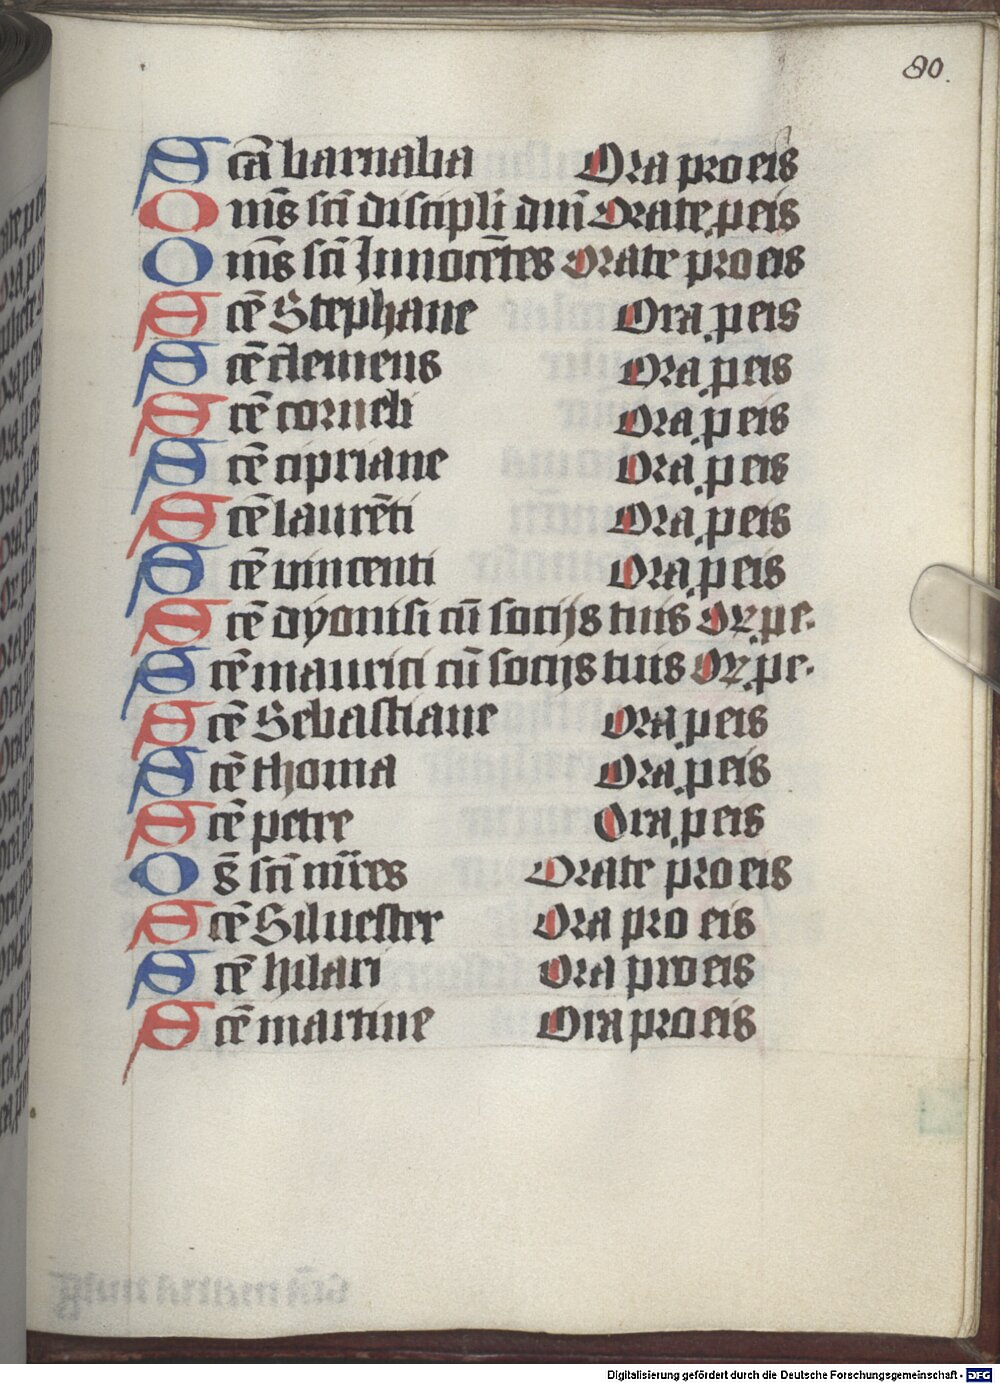 80.
Scā barnaba Ora pro eis
Om̄s scī discipli dn̄i Orate p eis
Om̄s scī Innocētes Orate pro eis
Scē Stephane Ora p eis
Scē clemens Ora p eis
Scē corneli Ora p eis
Scē cipriane Ora p eis
Scē laurēti Ora p eis
Scē vincenti Ora p eis
Scē dyonisi cū socijs tuis Or p e.
Scē maurici cū socijs tuis Or p e.
Scē Sebastiane Ora p eis
Scē thoma Ora p eis
Scē petre Ora p eis
Os̄ scī m̄res Orate pro eis
Scē Siluester Ora pro eis
Scē hilari Ora pro eis
Scē martine Ora pro eis
Digitalisierung gefördert durch die Deutsche Forschungsgemeinschaft - DFG